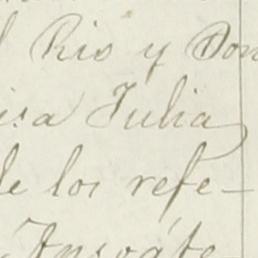 l Rio y Don
isa Julia
de los refe-